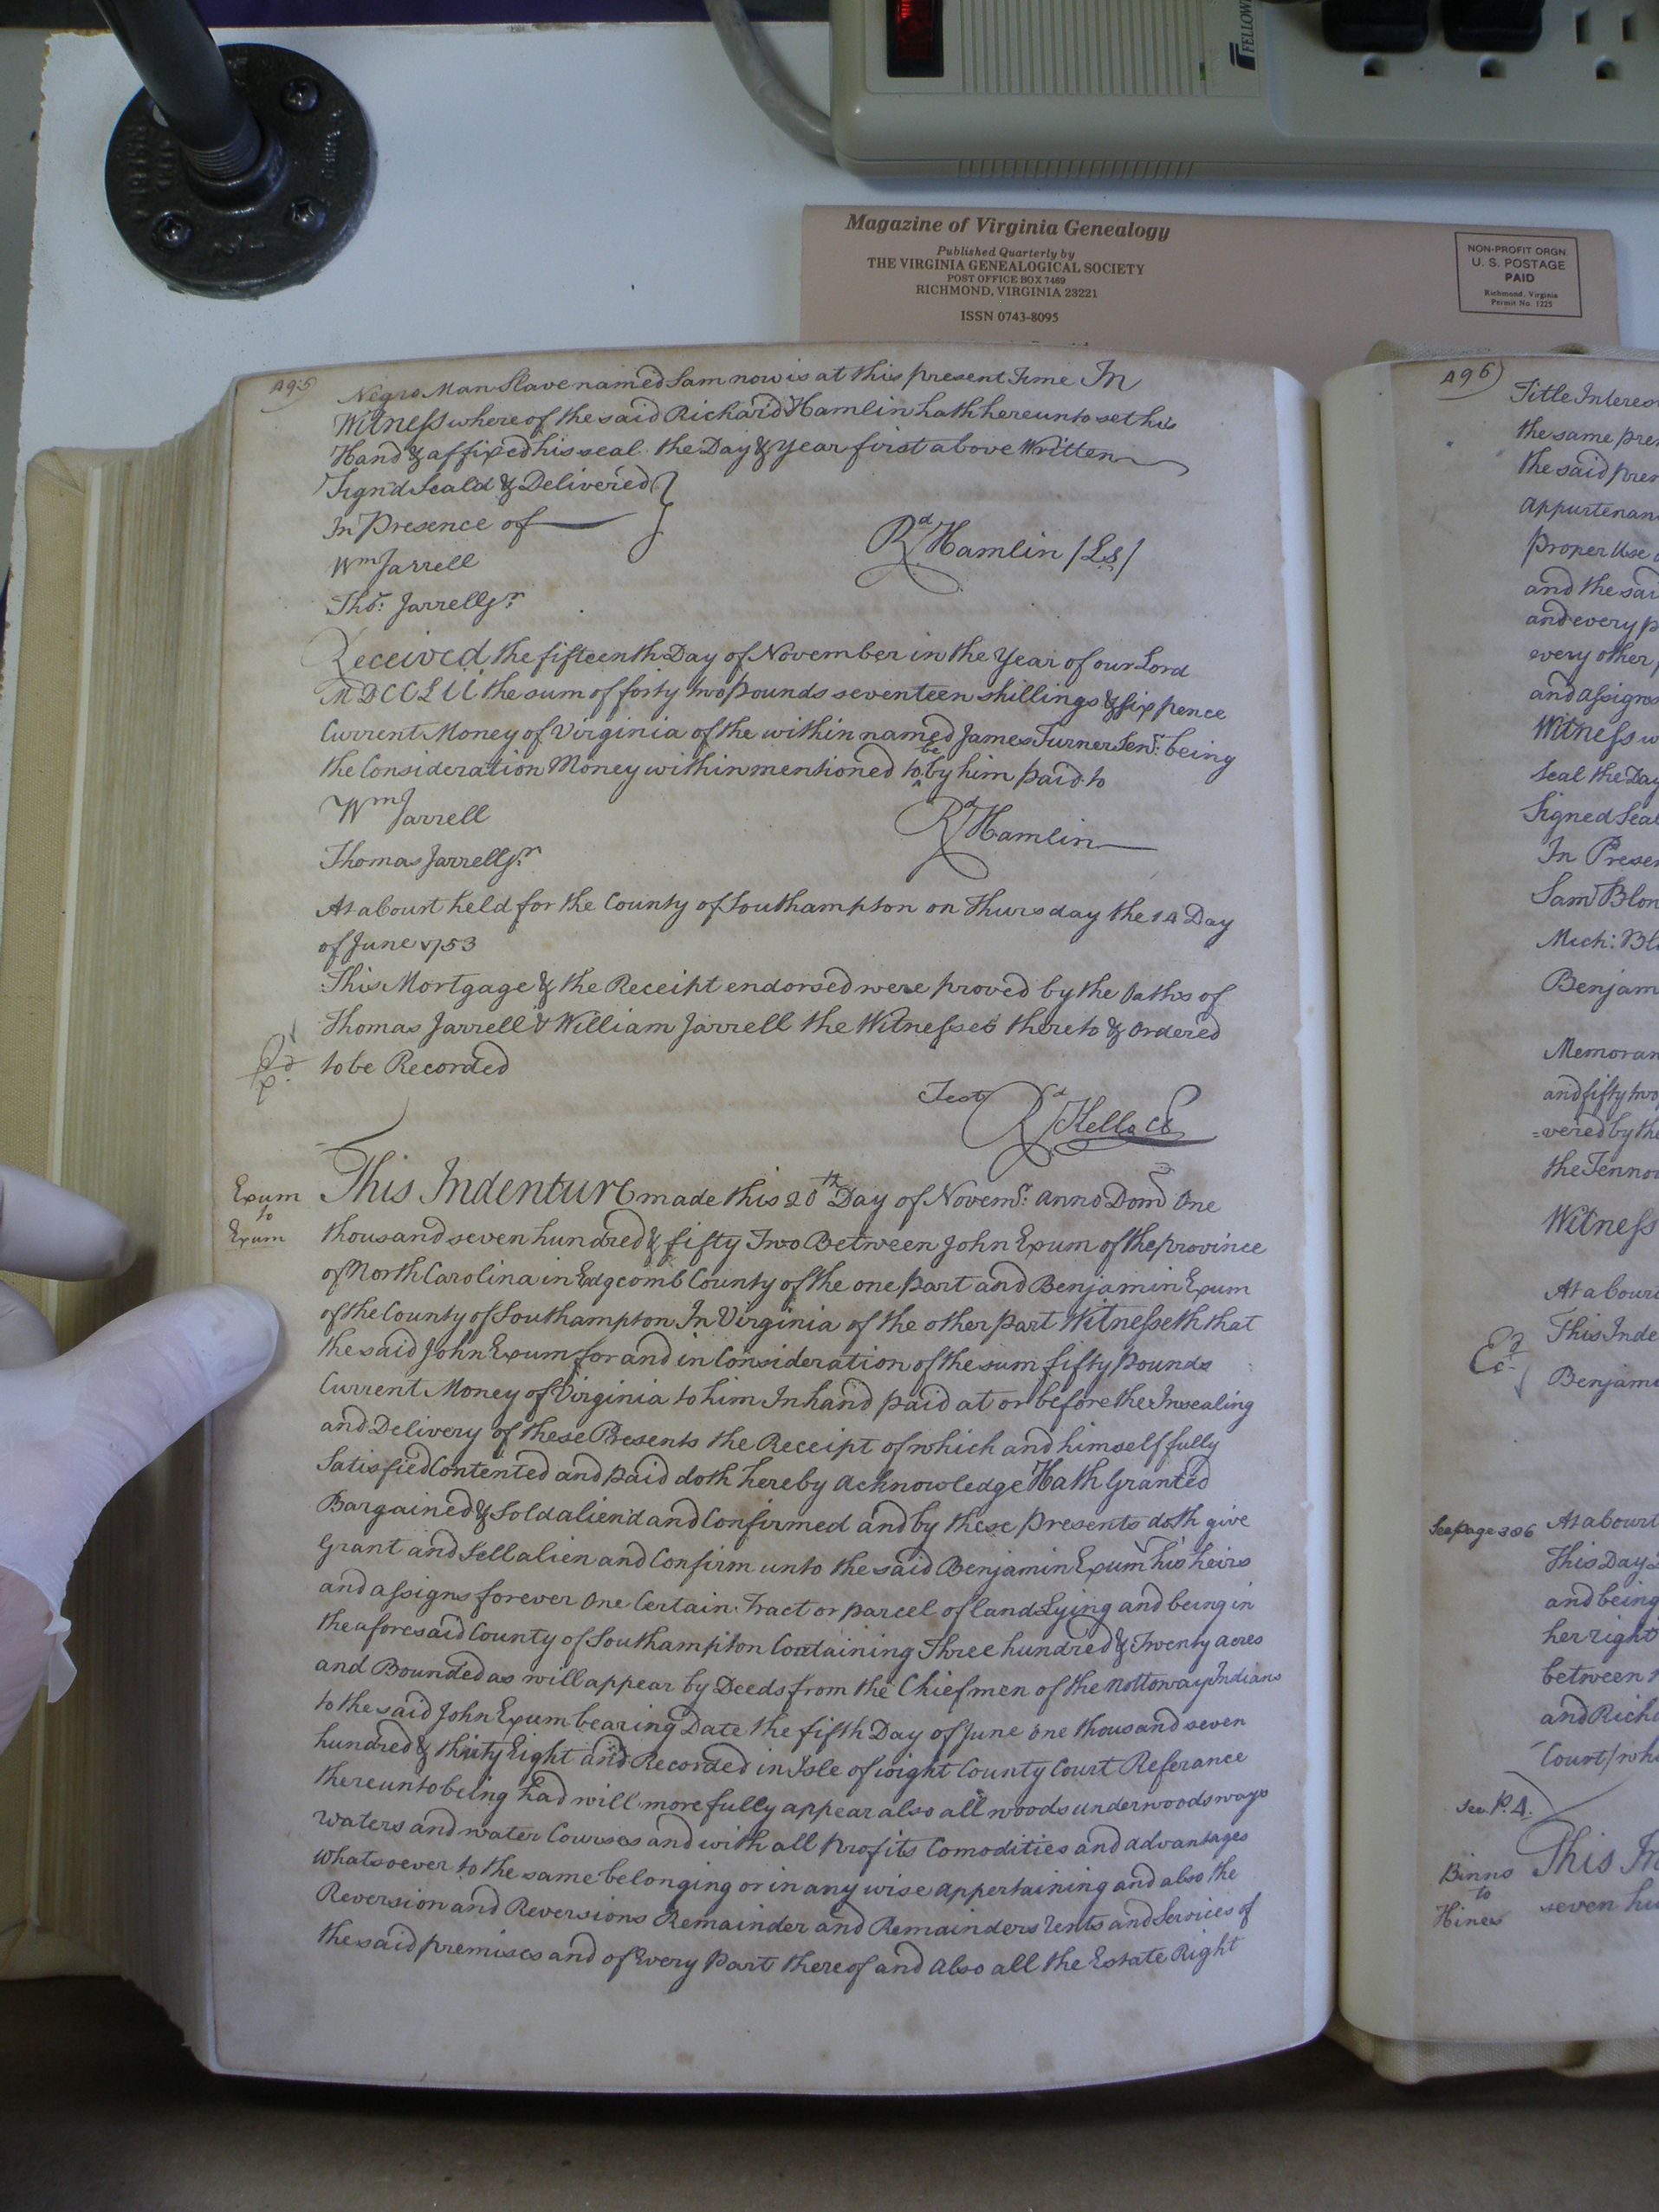 FELLOW
Magazine of Virginia Genealogy
Published Quarterly by
THE VIRGINIA GENEALOGICAL SOCIETY
POST OFFICE BOX 7469
RICHMOND, VIRGINIA 23221
ISSN 0743-8095
NON-PROFIT ORGN.
U. S. POSTAGE
PAID
Richmond, Virginia
Permit No. 1225
495
Negro Man Slave named Sam now is at this present Time In
Witness where of the said Richard Hamlin hath hereunto set his
Hand & affixed his seal the Day & Year first above Written
Sign'd Seald & Delivered
In Presence of
Wm Jarrell
Rd Hamlin (Ls)
Thos: Jarrell Jr
Received the fifteenth Day of November in the Year of our Lord
MDCCLII the sum of forty two Pounds seventeen shillings & six pence
Current Money of Virginia of the within named James Turner Senr: being
the Consideration Money within mentioned to be by him paid to
Wm Jarrell
Rd Hamlin
Thomas Jarrell Jr
At a Court held for the County of Southampton on Thursday the 14 Day
of June 1753
This Mortgage & the Receipt endorsed were proved by the Oaths of
Thomas Jarrell & William Jarrell the Witnesses thereto & Ordered
to be Recorded
Test
Rd Kello Cl
Exum
to
Exum
This Indenture made this 20th Day of Novemr: anno Dom One
thousand seven hundred & fifty Two Between John Exum of the province
of North Carolina in Edgcomb County of the one part and Benjamin Exum
of the County of Southampton In Virginia of the other part Witnesseth that
the said John Exum for and in Consideration of the sum fifty Pounds
Current Money of Virginia to him In hand paid at or before the Insealing
and Delivery of these Presents the Receipt of which and himself fully
Satisfied Contented and paid doth hereby acknowledge Hath Granted
Bargained & Sold aliend and Confirmed and by these presents doth give
Grant and Sell alien and Confirm unto the said Benjamin Exum his heirs
and assigns forever One Certain Tract or parcel of land Lying and being in
the aforesaid County of Southampton Containing Three hundred & Twenty acres
and Bounded as will appear by Deeds from the Chiefmen of the Nottoway Indians
to the said John Exum bearing Date the fifth Day of June one thousand seven
hundred & thirty Eight and Recorded in Isle of wight County Court Referance
thereunto being had will more fully appear also all woods underwoods ways
waters and water Courses and with all profits Comodities and advantages
whatsoever to the same belonging or in any wise appertaining and also the
Reversion and Reversions Remainder and Remainders rents and Services of
the said premises and of Every Part thereof and Also all the Estate Right
496
Title Interes
the same pre
the said pre
appurtenan
proper Use
and the sai
and every p
every other
and assigns
Witness w
Seal the Day
Signed Seal
In Presen
Sam Blon
Mich: Bl
Benjam
Memoran
and fifty two
=vered by the
the Tenno
Witness
At a Cour
This Inde
Benjami
See page 386
At a Court
This Day
and being
her right
between
and Rich
Court/wh
See. P. 4.
Binns
to
Hines
This In
seven hu